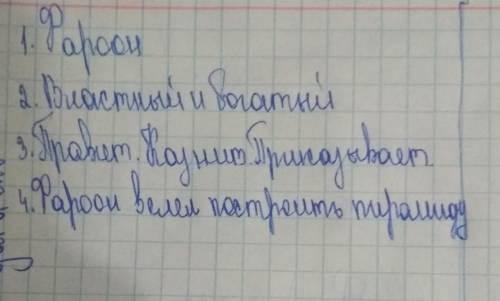 1. Фараон
2. Властный и богатый
3. Правит. Казнит. Приказывает
4. Фараон велел построить пирамиду